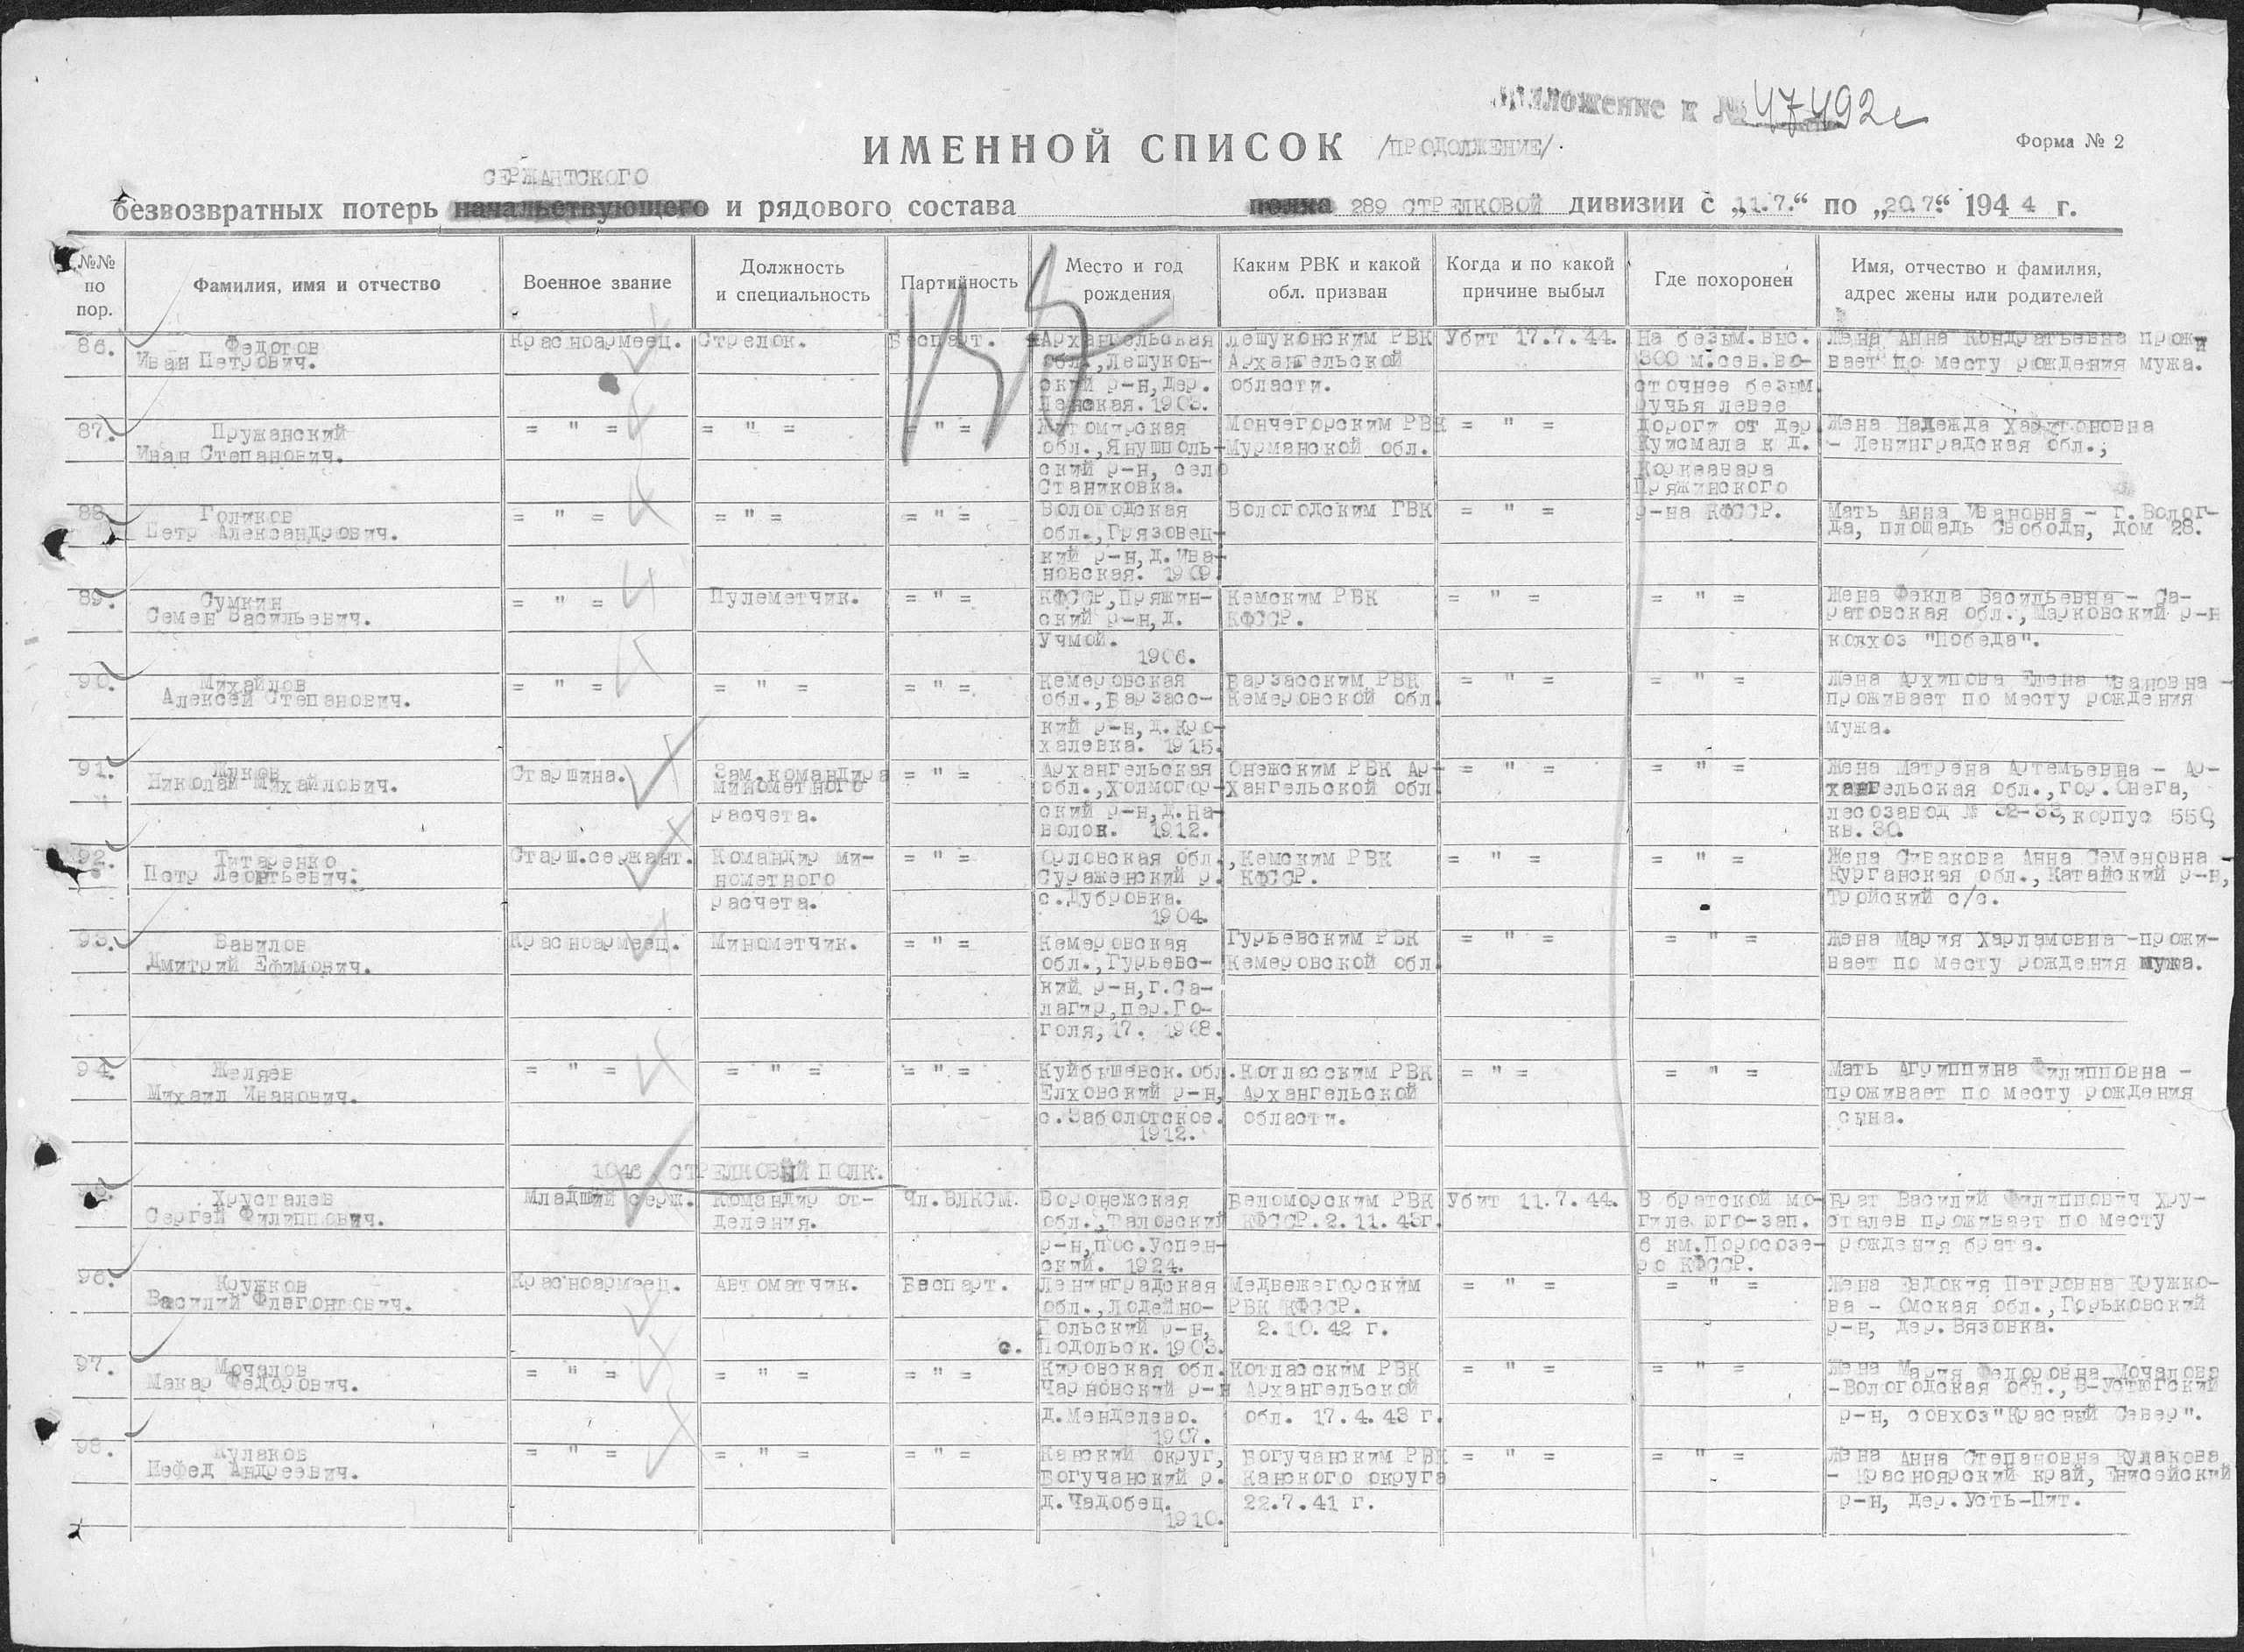 Приложение к № 47492с
ИМЕННОЙ СПИСОК /ПРОДОЛЖЕНИЕ/.
Форма № 2
СЕРЖАНТСКОГО
безвозвратных потерь начальствующего и рядового состава полка 289 СТРЕЛКОВОЙ дивизии с „11.7.“ по „20.7.“ 1944 г.
№№ по пор.
Фамилия, имя и отчество
Военное звание
Должность и специальность
Партийность
Место и год рождения
Каким РВК и какой обл. призван
Когда и по какой причине выбыл
Где похоронен
Имя, отчество и фамилия, адрес жены или родителей
86. Федотов Иван Петрович.
Красноармеец.
Стрелок.
Беспарт.
Архангельская
обл., Лешукон-
ский р-н, дер.
1903.
Лешуконским РВК
Архангельской
области.
Убит 17.7.44.
На безым. выс.
800 м.сев.во-
сточнее безым.
ручья левее
дороги от дер.
Куисмала к д.
Коркеавара
Пряжинского
р-на КФССР.
Жена Анна Кондратьевна прожи
вает по месту рождения мужа.
87. Пружанский Иван Степанович.
= " =
= " =
= " =
Житомирская
обл., Янушполь-
ский р-н, село
Станиковка.
Мончегорским РВК
Мурманской обл.
= " =
Жена Надежда Харитоновна
- Ленинградская обл.,
88. Голиков Петр Александрович.
= " =
= " =
= " =
Вологодская
обл., Грязовец-
кий р-н, д. Ива-
новская. 1909.
Вологодским ГВК
= " =
Мать Анна Ивановна - г. Волог-
да, площадь Свободы, дом 28.
89. Сумкин Семен Васильевич.
= " =
Пулеметчик.
= " =
КФССР, Пряжин-
ский р-н, д.
Учмой.
1906.
Кемским РВК
КФССР.
= " =
= " =
Жена Фекла Васильевна - Са-
ратовская обл., Марковский р-н
колхоз "Победа".
90. Михайлов Алексей Степанович.
= " =
= " =
= " =
Кемеровская
обл., Барзасс-
кий р-н, д. Кро-
халевка. 1915.
Барзасским РВК
Кемеровской обл.
= " =
= " =
Жена Архипова Елена Ивановна -
проживает по месту рождения
мужа.
91. Жуков Николай Михайлович.
Старшина.
Зам. командира
минометного
расчета.
= " =
Архангельская
обл., Холмогор-
ский р-н, д. На-
волок. 1912.
Онежским РВК Ар-
хангельской обл.
= " =
= " =
Жена Матрена Артемьевна - Ар-
хангельская обл., гор. Онега,
лесозавод № 32-33, корпус 550,
кв. 30.
92. Титаренко Петр Леонтьевич.
Старш.сержант.
Командир ми-
нометного
расчета.
= " =
Орловская обл.,
Суражский р.
с. Дубровка.
1904.
Кемским РВК
КФССР.
= " =
= " =
Жена Сивакова Анна Семеновна -
Курганская обл., Катайский р-н,
Тройский с/с.
93. Вавилов Дмитрий Ефимович.
Красноармеец.
Минометчик.
= " =
Кемеровская
обл., Гурьевс-
кий р-н, г. Са-
лагир, пер. Го-
голя, 17. 1908.
Гурьевским РВК
Кемеровской обл.
= " =
= " =
Жена Мария Харламовна -прожи-
вает по месту рождения мужа.
94. Желяев Михаил Иванович.
= " =
= " =
= " =
Куйбышевск. обл.
Елховский р-н,
с. Заболотское.
1912.
Котласским РВК
Архангельской
области.
= " =
= " =
Мать Агриппина Филипповна -
проживает по месту рождения
сына.
1046 СТРЕЛКОВЫЙ ПОЛК.
95. Хрусталев Сергей Филиппович.
Младший серж.
Командир от-
деления.
Чл. ВЛКСМ.
Воронежская
обл., Таловский
р-н, пос. Успен-
ский. 1924.
Беломорским РВК
КФССР. 2.11.43г.
Убит 11.7.44.
В братской мо-
гиле юго-зап.
6 км. Поросозе-
ро КФССР.
Брат Василий Филиппович Хру-
сталев проживает по месту
рождения брата.
96. Кружков Василий Флегонтович.
Красноармеец.
Автоматчик.
Беспарт.
Ленинградская
обл., Лодейно-
Польский р-н,
с. Подольск. 1903.
Медвежегорским
РВК КФССР.
2.10.42 г.
= " =
= " =
Жена Евдокия Петровна Кружко-
ва - Омская обл., Горьковский
р-н, дер. Вязовка.
97. Мочалов Макар Федорович.
= " =
= " =
= " =
Кировская обл.
Чарновский р-н
д. Менделево.
1907.
Котласским РВК
Архангельской
обл. 17.4.43 г.
= " =
= " =
Жена Мария Федоровна Мочалова
-Вологодская обл., В-Устюгский
р-н, совхоз "Красный Север".
98. Кулаков Нефед Андреевич.
= " =
= " =
= " =
Канский округ,
Богучанский р.
д. Чадобец.
1910.
Богучанским РВК
Канского округа
22.7.41 г.
= " =
= " =
Жена Анна Степановна Кулакова
- Красноярский край, Енисейский
р-н, дер. Усть-Пит.